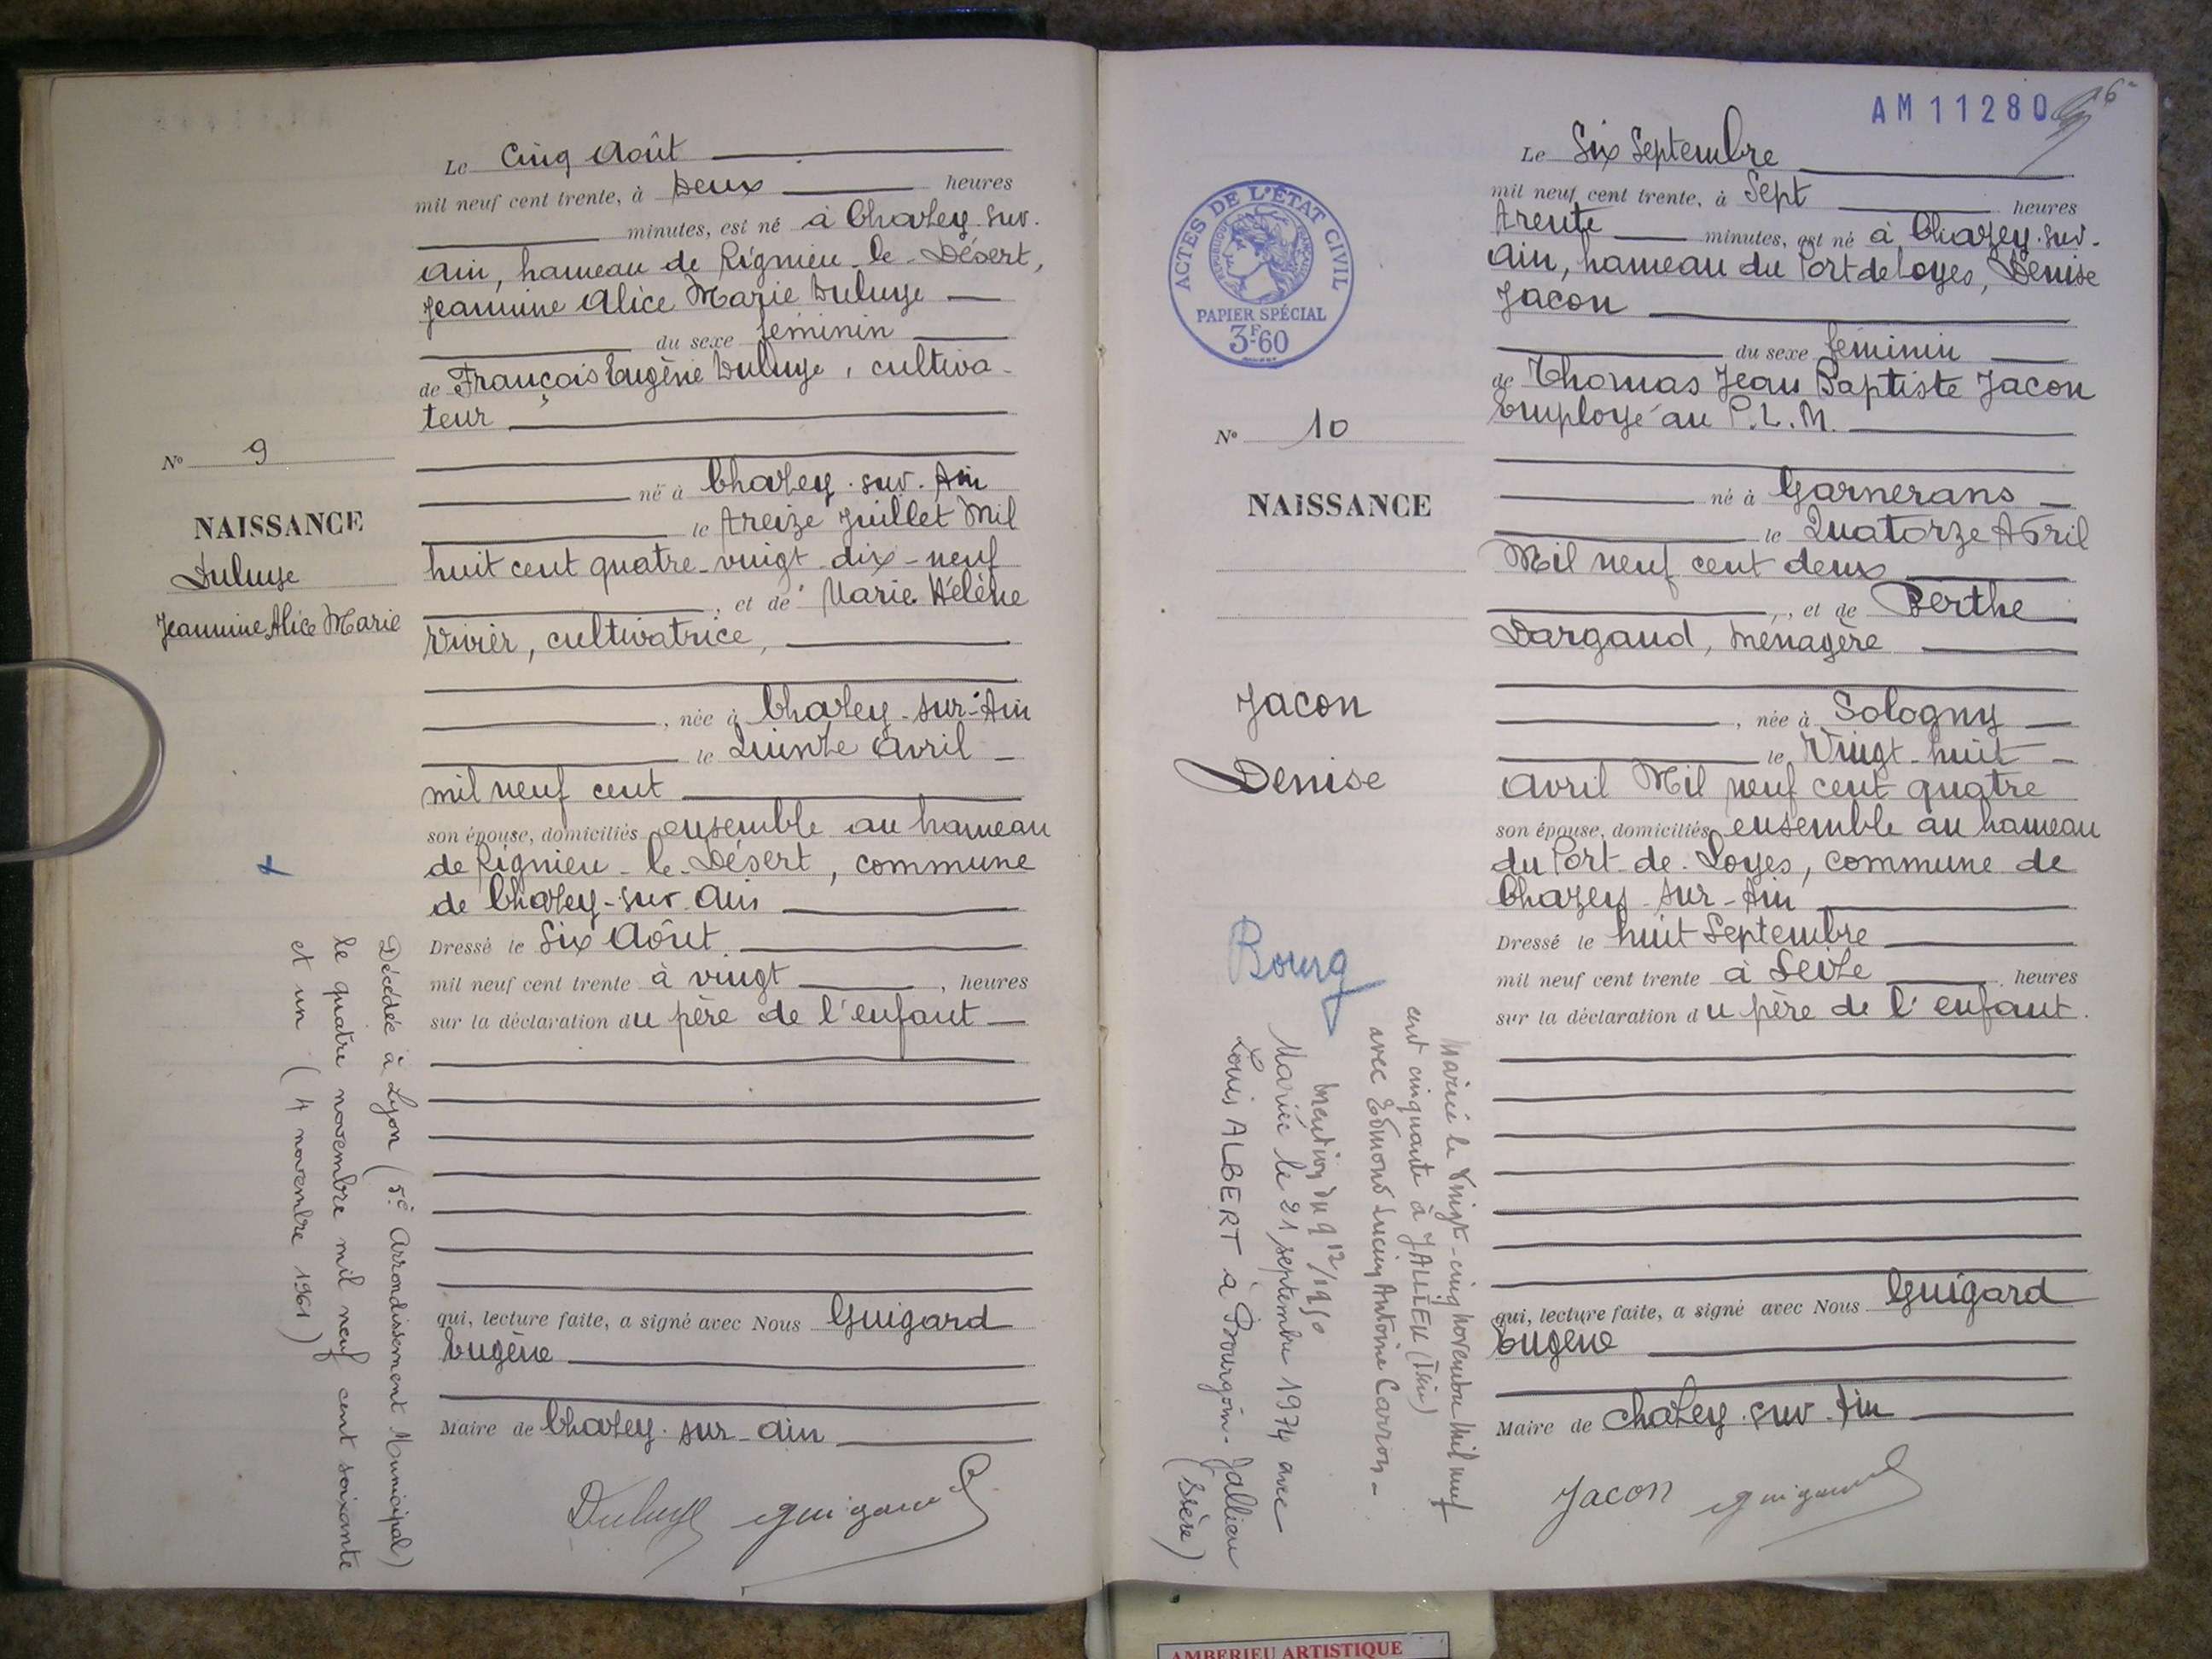 Le Cinq Août
mil neuf cent trente, à Deux heures
minutes, est né à Chazey-sur-
Ain, hameau de Rignieu-le-Désert,
Jeannine Alice Marie Duluye
du sexe féminin
de François Eugène Duluye, cultiva-
teur
né à Chazey-sur-Ain
le treize Juillet Mil
huit cent quatre-vingt-dix-neuf
, et de Marie Hélène
Vivier, cultivatrice,
, née à Chazey-sur-Ain
le Quinze Avril
mil neuf cent
son épouse, domiciliés ensemble au hameau
de Rignieu-le-Désert, commune
de Chazey-sur-Ain
Dressé le Six Août
mil neuf cent trente à vingt, heures
sur la déclaration du père de l'enfant
qui, lecture faite, a signé avec Nous Guigard
Eugène
Maire de Chazey-sur-Ain
Duluye Guigard
N° 9
NAISSANCE
Duluye
Jeannine Alice Marie
Décédée à Lyon (5e Arondissement Municipal)
le quatre novembre mil neuf cent soixante
et un (4 novembre 1961)
AM11280
6
Le Six Septembre
mil neuf cent trente, à Sept heures
trente minutes, est né à Chazey-sur-
Ain, hameau du Port de Loyes, Denise
Jacon
du sexe féminin
de Thomas Jean Baptiste Jacon
Employé au P.L.M.
né à Garnerans
le Quatorze Avril
Mil neuf cent deux
, et de Berthe
Dargaud, Ménagère
, née à Sologny
le Vingt-huit
Avril Mil neuf cent quatre
son épouse, domiciliés ensemble au hameau
du Port-de-Loyes, commune de
Chazey-sur-Ain
Dressé le huit Septembre
mil neuf cent trente à Seize heures
sur la déclaration du père de l'enfant.
qui, lecture faite, a signé avec Nous Guigard
Eugène
Maire de Chazey-sur-Ain
Jacon Guigard
ACTES DE L'ÉTAT CIVIL
RÉPUBLIQUE FRANÇAISE
PAPIER SPÉCIAL
3F60
N° 10
NAISSANCE
Jacon
Denise
Bourg
Mariée le Vingt-cinq Novembre Mil neuf
cent cinquante à JALLIEU (Isère)
avec Edmond Lucien Antoine Carron-
Mention du 9 12/1950
Mariée le 21 septembre 1974 avec
Louis ALBERT à Bourgoin-Jallieu
(Isère)
AMBERIEU ARTISTIQUE